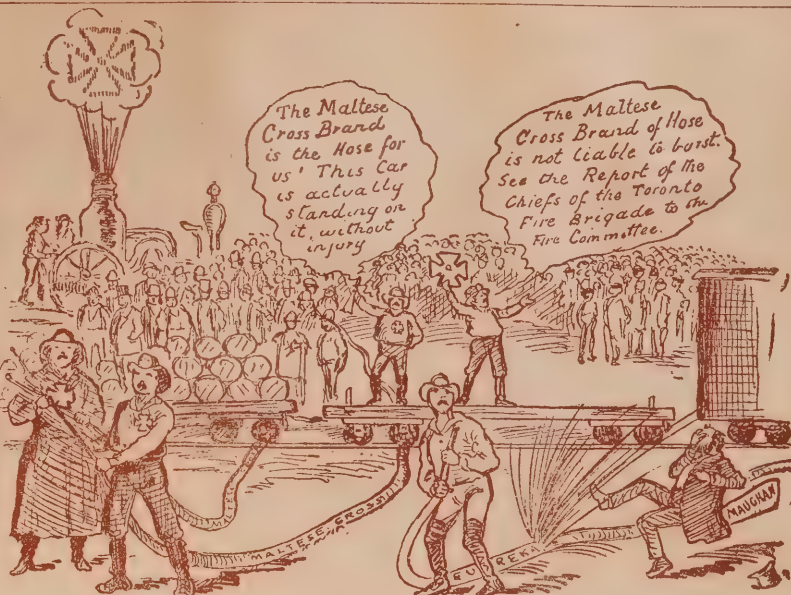 The Maltese
Cross Brand
is the Hose for
us' This Car
is actually
standing on
it, without
injury
The Maltese
Cross Brand of Hose
is not liable to burst.
See the Report of the
Chiefs of the Toronto
Fire Brigade to the
Fire Committee.
MALTESE CROSS
EUREKA
MAUGHAN